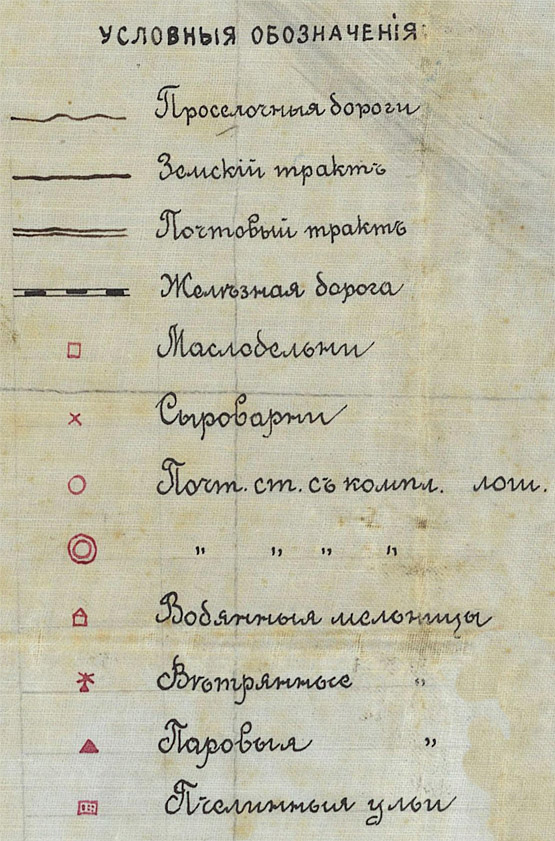 УСЛОВНЫЯ ОБОЗНАЧЕНІЯ
Проселочныя дороги
Земскій трактъ
Почтовый трактъ
Желѣзная дорога
Маслодельни
Сыроварни
Почт. ст. съ компл. лош.
" " " "
Водянныя мельницы
Вѣтрянные "
Паровыя "
Пчелинныя ульи